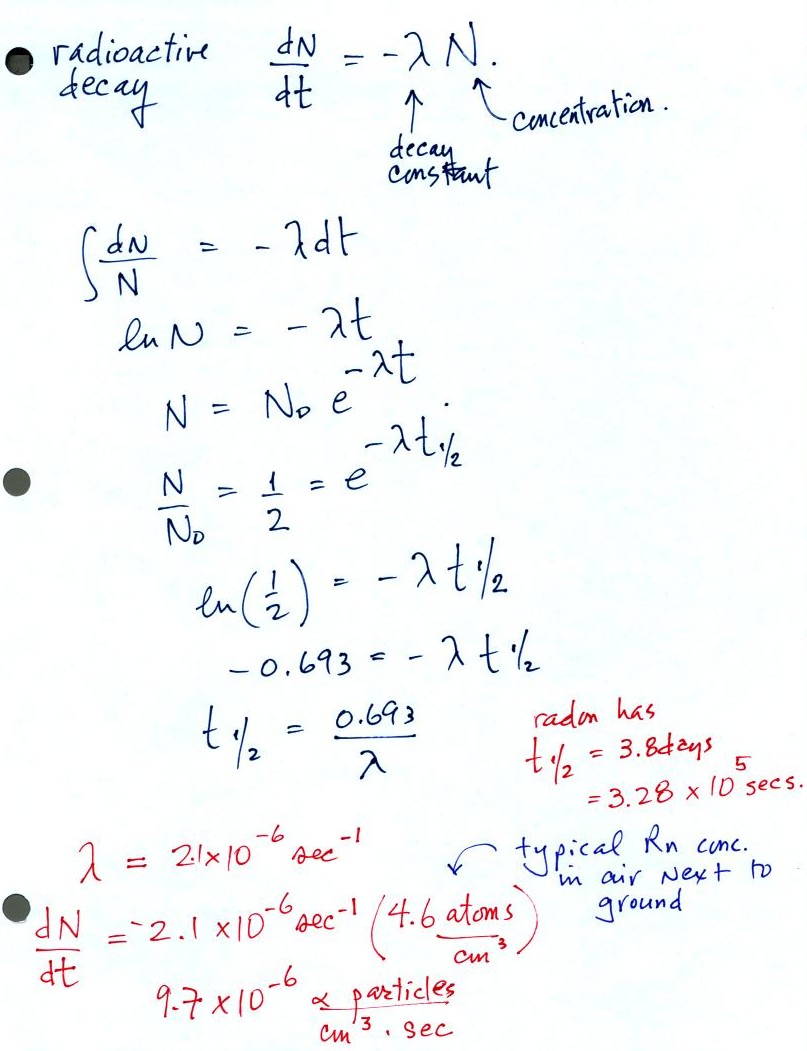 radioactive decay dN/dt = -λ N.
concentration.
decay constant
∫ dN/N = - λdt
ln N = - λt
N = N₀ e^(-λt)
N/N₀ = 1/2 = e^(-λt½)
ln(1/2) = - λ t½
-0.693 = - λ t½
t½ = 0.693/λ
radon has
t½ = 3.8days
= 3.28 x 10⁵ secs.
λ = 2.1x10⁻⁶ sec⁻¹
typical Rn conc.
in air next to
ground
dN/dt = -2.1 x10⁻⁶ sec⁻¹ (4.6 atoms/cm³)
9.7 x10⁻⁶ α particles/cm³ . sec